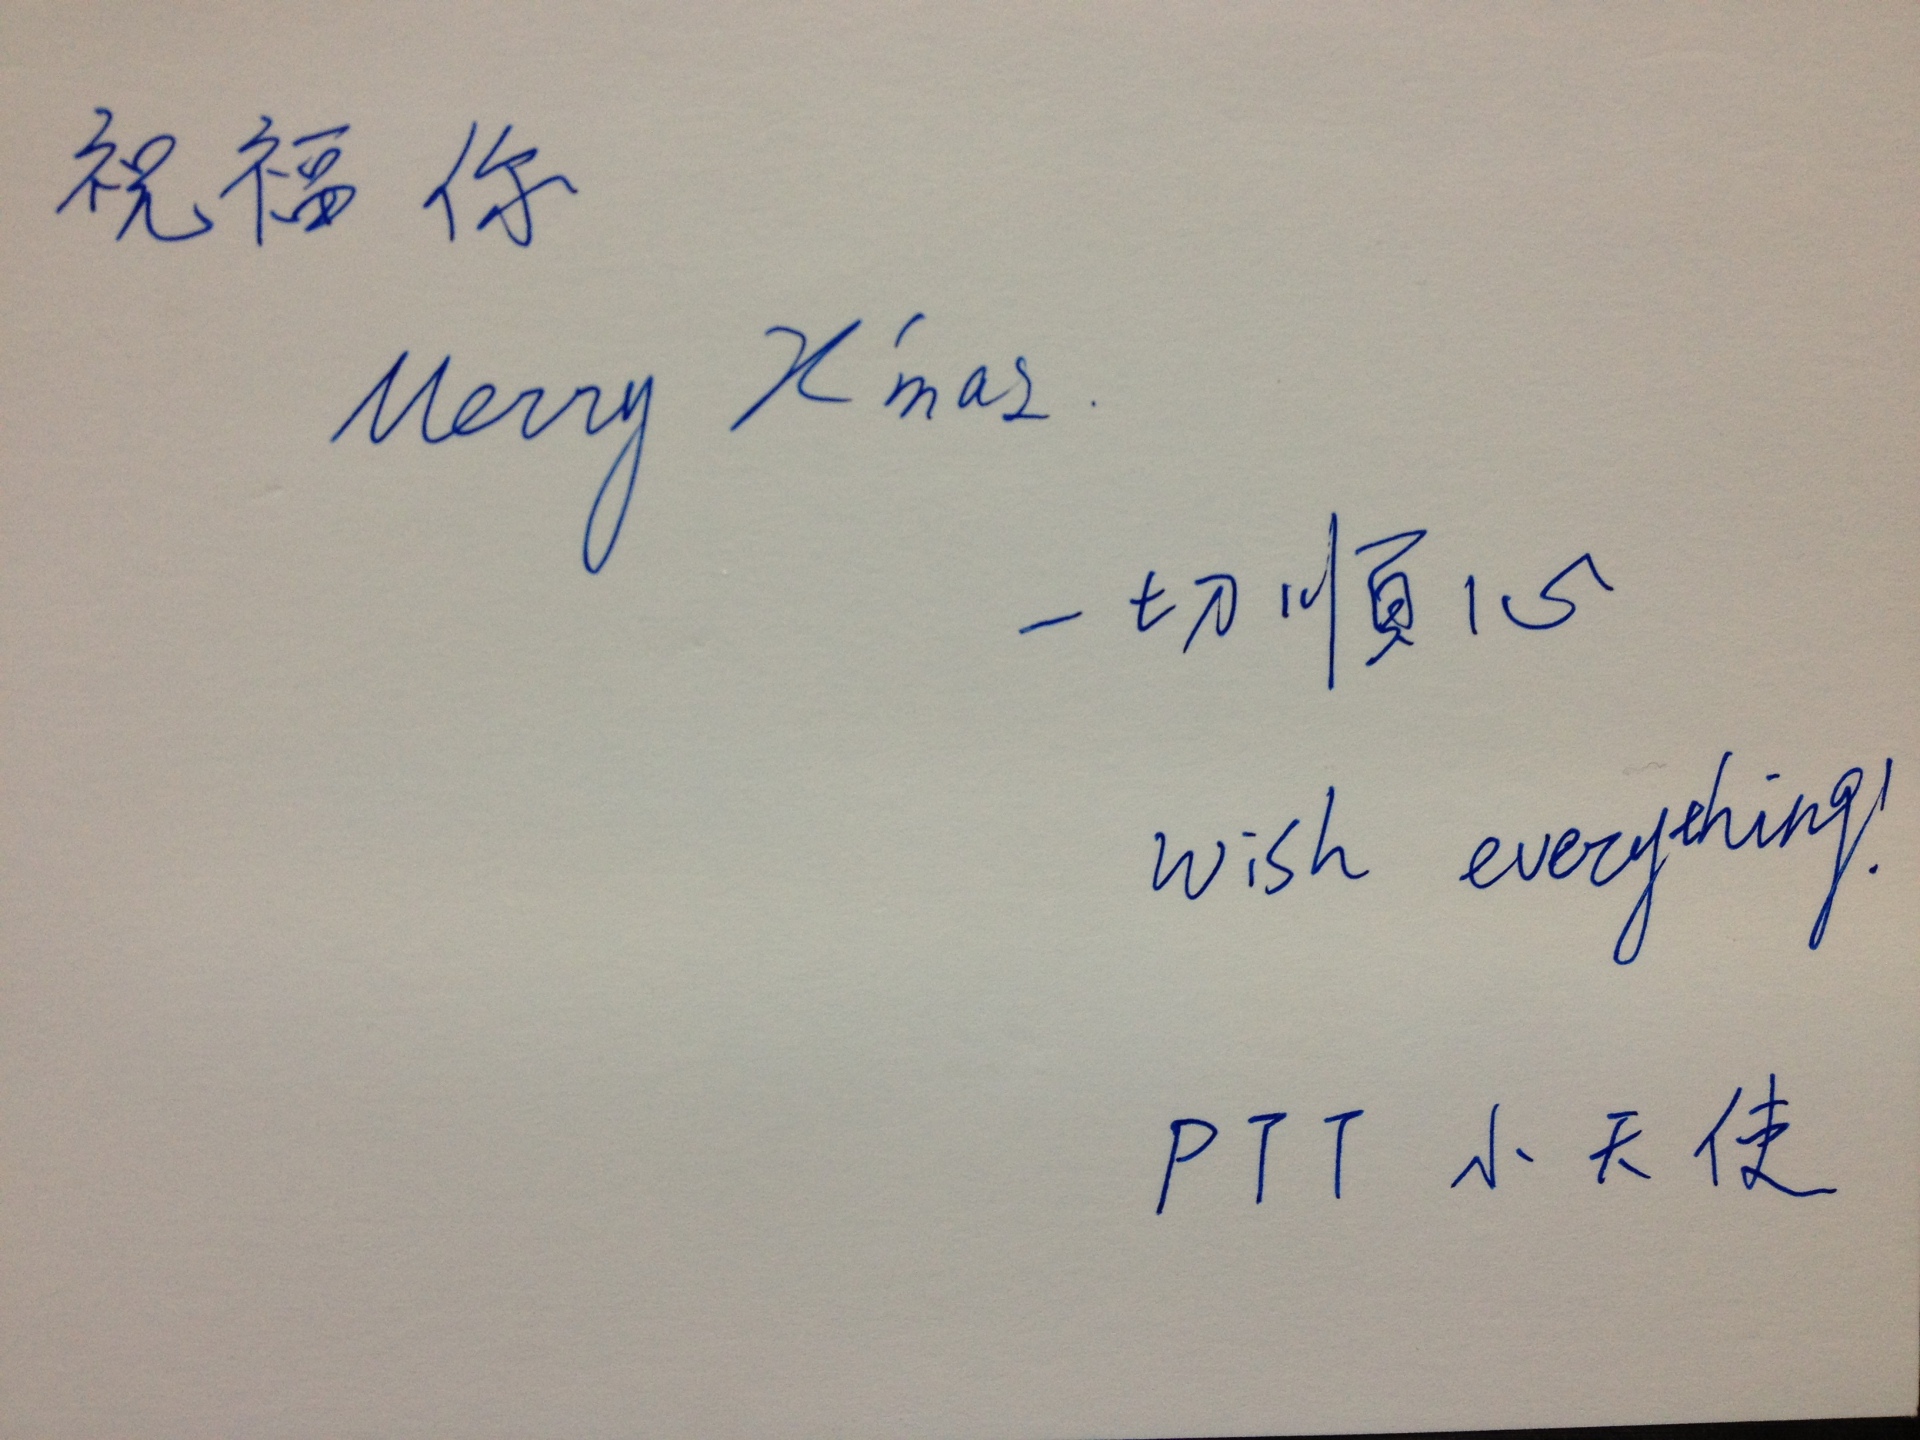 祝福你
Merry X'mas.
一切順心
wish everything!
PTT 小天使